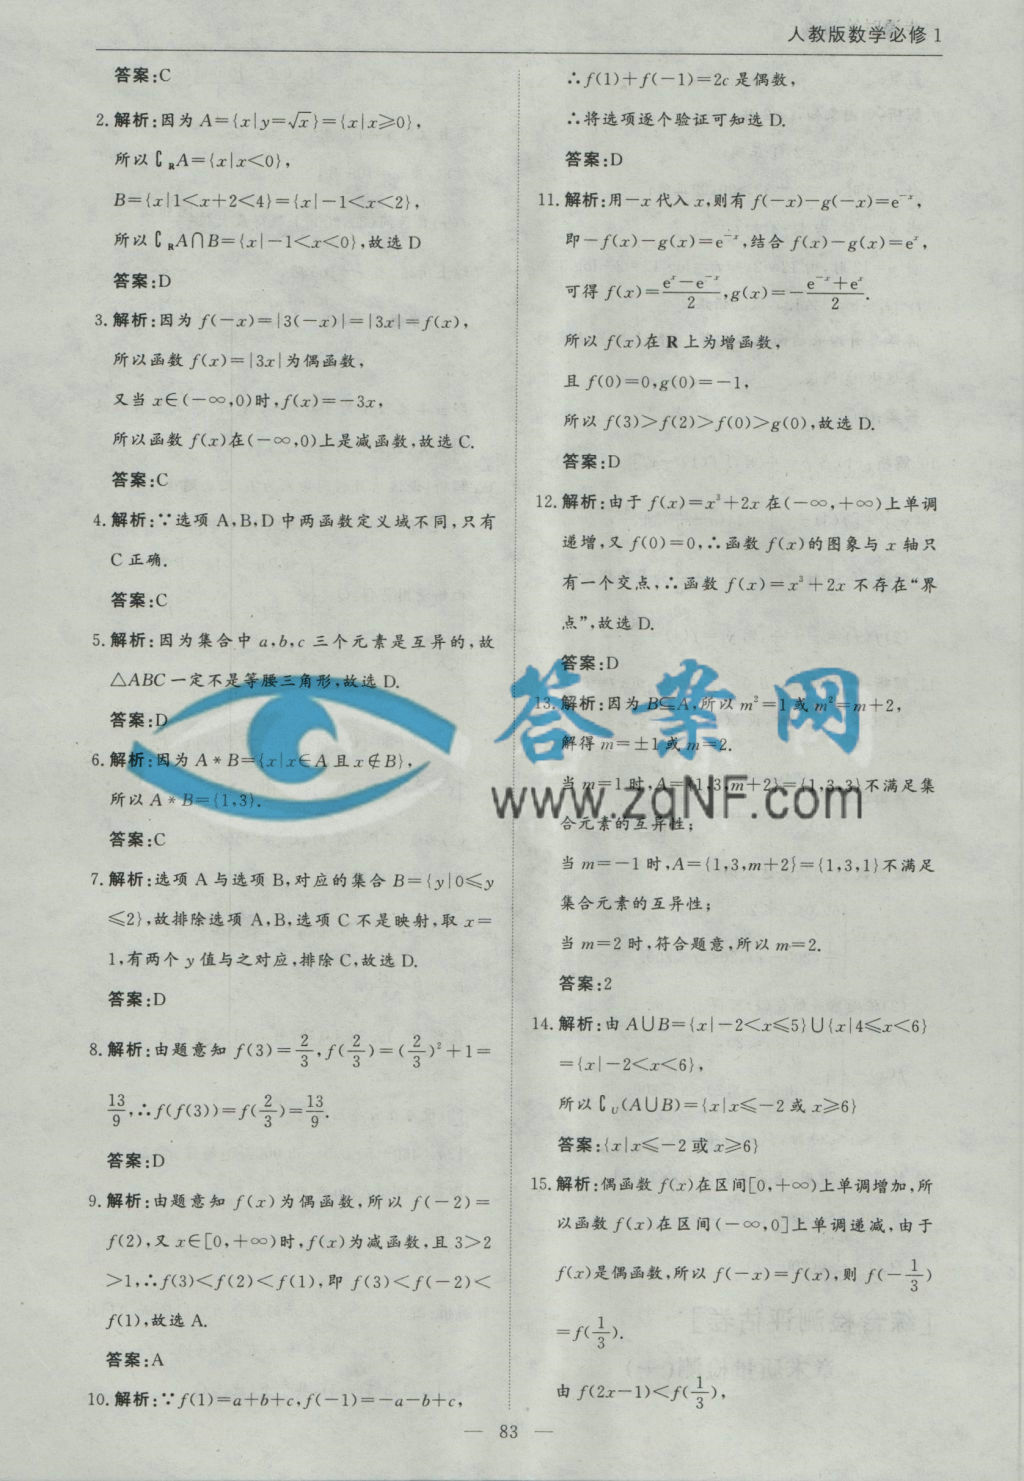 人教版数学必修 1
答案:C
2.解析:因为 A={x|y=√x}={x|x≥0},
所以∁RA={x|x<0},
B={x|1<x+2<4}={x|-1<x<2},
所以∁RA∩B={x|-1<x<0},故选 D
答案:D
3.解析:因为 f(-x)=|3(-x)|=|3x|=f(x),
所以函数 f(x)=|3x|为偶函数,
又当 x∈(-∞,0)时,f(x)=-3x,
所以函数 f(x)在(-∞,0)上是减函数,故选 C.
答案:C
4.解析:∵选项 A,B,D 中两函数定义域不同,只有
C 正确.
答案:C
5.解析:因为集合中 a,b,c 三个元素是互异的,故
△ABC 一定不是等腰三角形,故选 D.
答案:D
6.解析:因为 A*B={x|x∈A 且 x∉B},
所以 A*B={1,3}.
答案:C
7.解析:选项 A 与选项 B,对应的集合 B={y|0≤y
≤2},故排除选项 A,B,选项 C 不是映射,取 x=
1,有两个 y 值与之对应,排除 C,故选 D.
答案:D
8.解析:由题意知 f(3)=2/3,f(2/3)=(2/3)²+1=
13/9,∴f(f(3))=f(2/3)=13/9.
答案:D
9.解析:由题意知 f(x)为偶函数,所以 f(-2)=
f(2),又 x∈[0,+∞)时,f(x)为减函数,且 3>2
>1,∴f(3)<f(2)<f(1),即 f(3)<f(-2)<
f(1),故选 A.
答案:A
10.解析:∵f(1)=a+b+c,f(-1)=-a-b+c,
∴f(1)+f(-1)=2c 是偶数,
∴将选项逐个验证可知选 D.
答案:D
11.解析:用-x 代入 x,则有 f(-x)-g(-x)=e⁻ˣ,
即-f(x)-g(x)=e⁻ˣ,结合 f(x)-g(x)=eˣ,
可得 f(x)=(eˣ-e⁻ˣ)/2,g(x)=-(e⁻ˣ+eˣ)/2.
所以 f(x)在 R 上为增函数,
且 f(0)=0,g(0)=-1,
所以 f(3)>f(2)>f(0)>g(0),故选 D.
答案:D
12.解析:由于 f(x)=x³+2x 在(-∞,+∞)上单调
递增,又 f(0)=0,∴函数 f(x)的图象与 x 轴只
有一个交点,∴函数 f(x)=x³+2x 不存在“界
点”,故选 D.
答案:D
13.解析:因为 B⊆A,所以 m²=1 或 m²=m+2,
解得 m=±1 或 m=2.
当 m=1 时,A={1,3,m+2}={1,3,3}不满足集
合元素的互异性;
当 m=-1 时,A={1,3,m+2}={1,3,1}不满足
集合元素的互异性;
当 m=2 时,符合题意,所以 m=2.
答案:2
14.解析:由 A∪B={x|-2<x≤5}∪{x|4≤x<6}
={x|-2<x<6},
所以∁U(A∪B)={x|x≤-2 或 x≥6}
答案:{x|x≤-2 或 x≥6}
15.解析:偶函数 f(x)在区间[0,+∞)上单调增加,所
以函数 f(x)在区间(-∞,0]上单调递减,由于
f(x)是偶函数,所以 f(-x)=f(x),则 f(-1/3)
=f(1/3).
由 f(2x-1)<f(1/3),
— 83 —
答案网
www.zqNF.com